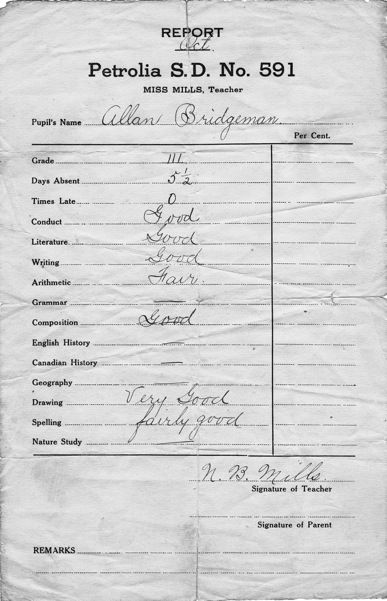 REPORT
Oct.
Petrolia S.D. No. 591
MISS MILLS, Teacher
Pupil's Name Allan Bridgeman.
Per Cent.
Grade III
Days Absent 5 1/2
Times Late 0
Conduct Good
Literature Good
Writing Good
Arithmetic Fair.
Grammar —
Composition Good
English History —
Canadian History —
Geography —
Drawing Very Good
Spelling fairly good
Nature Study —
N. B. Mills.
Signature of Teacher
Signature of Parent
REMARKS